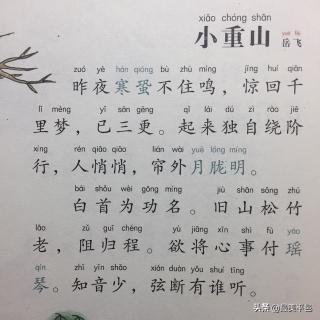 xiǎo chóng shān
小重山
yuè fēi
岳飞
zuó yè hán qióng bù zhù míng jīng huí qiān
昨夜寒蛩不住鸣，惊回千
lǐ mèng yǐ sān gēng qǐ lái dú zì rào jiē
里梦，已三更。起来独自绕阶
xíng rén qiāo qiāo lián wài yuè lóng míng
行，人悄悄，帘外月胧明。
bái shǒu wèi gōng míng jiù shān sōng zhú
白首为功名。旧山松竹
lǎo zǔ guī chéng yù jiāng xīn shì fù yáo
老，阻归程。欲将心事付瑶
qín zhī yīn shǎo xián duàn yǒu shuí tīng
琴。知音少，弦断有谁听。
头条